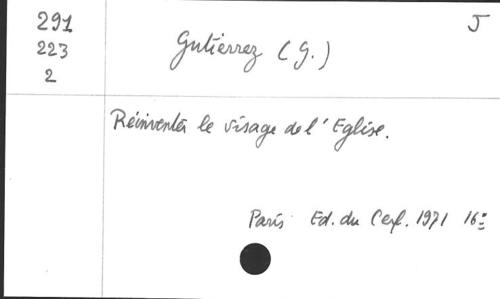 291 J
223 Gutiérrez (G.)
2
Réinventer le visage de l'Eglise.
Paris Ed. du Cerf. 1971 16º